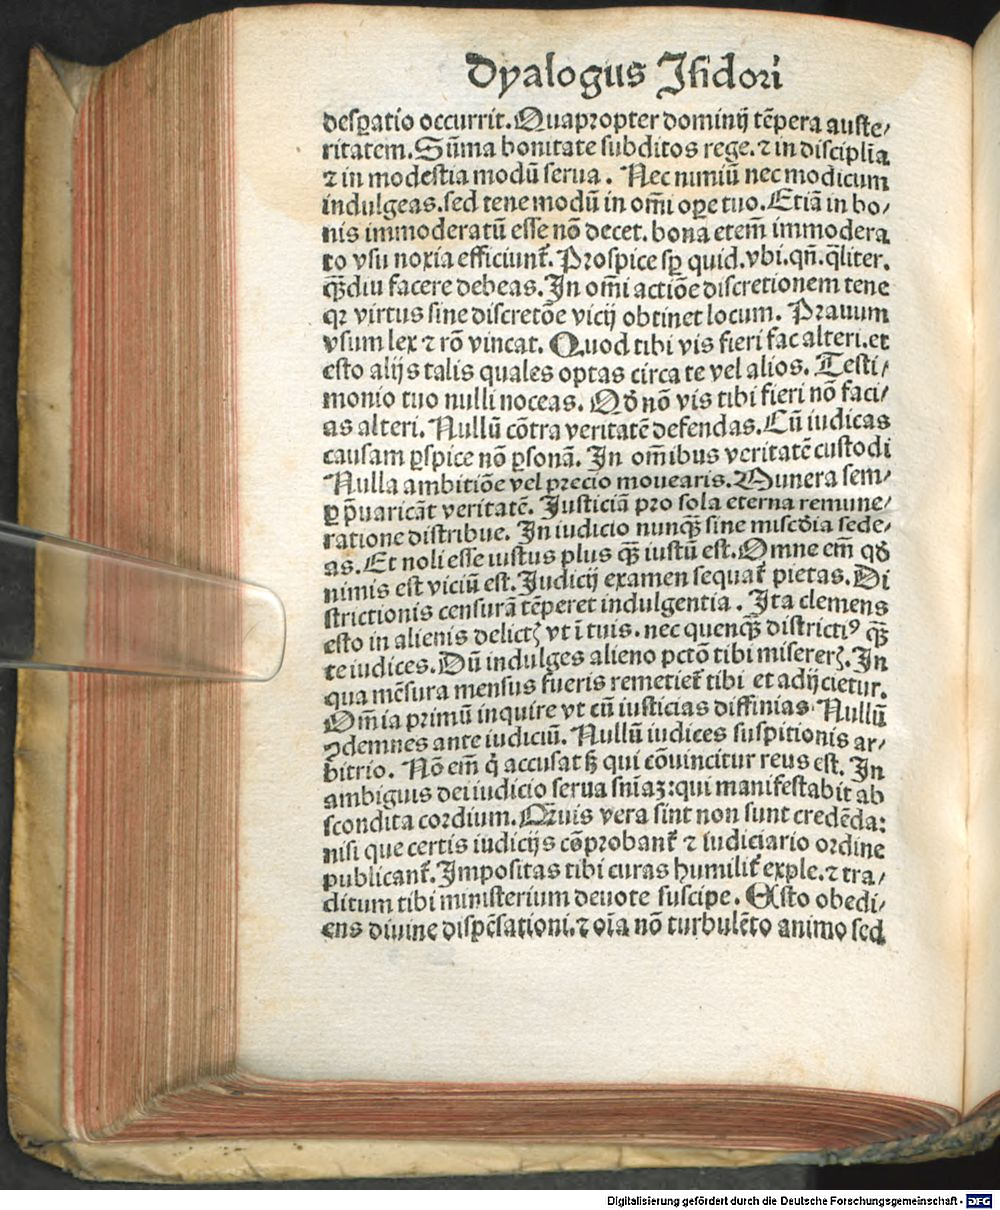 Dyalogus Isidori
desꝑatio occurrit. Quapropter dominij tēpera auste/
ritatem. Sūma bonitate subditos rege. ⁊ in disciplīa
⁊ in modestia modū serua. Nec nimiū nec modicum
indulgeas. sed tene modū in om̄i oꝑe tuo. Etiā in bo/
nis immoderatū esse nō decet. bona etem̄ immodera
to vsu noxia efficiunt̄. Prospice sꝑ quid. vbi. qn̄. q̄liter.
qȝdiu facere debeas. In om̄i actiōe discretionem tene
qꝛ virtus sine discretōe vicij obtinet locum. Prauum
vsum lex ⁊ rō vincat. Quod tibi vis fieri fac alteri. et
esto alijs talis quales optas circa te vel alios. Testi/
monio tuo nulli noceas. Qd̄ nō vis tibi fieri nō faci/
as alteri. Nullū cōtra veritatē defendas. Cū iudicas
causam ꝑspice nō ꝑsonā. In om̄ibus veritatē custodi
Nulla ambitiōe vel precio mouearis. Munera sem/
ꝑ p̄uaricāt veritatē. Justiciā pro sola eterna remune/
ratione distribue. In iudicio nunqȝ sine misc̄dia sede/
as. Et noli esse iustus plus qȝ iustū est. Omne em̄ qd̄
nimis est viciū est. Judicij examen sequat̄ pietas. Di
strictionis censurā tēperet indulgentia. Ita clemens
esto in alienis delictꝭ vt ī tuis. nec quenqȝ districtiꝰ qȝ
te iudices. Dū indulges alieno pctō tibi misererꝭ. In
qua mēsura mensus fueris remetiet̄ tibi et adijcietur.
Om̄ia primū inquire vt cū iusticias diffinias. Nullū
ꝯdemnes ante iudiciū. Nullū iudices suspitionis ar/
bitrio. Nō em̄ q̇ accusat sꝫ qui cōuincitur reus est. In
ambiguis dei iudicio serua sn̄iaꝫ: qui manifestabit ab
scondita cordium. Qāuis vera sint non sunt credēda:
nisi que certis iudicijs cōprobant̄ ⁊ iudiciario ordine
publicant̄. Impositas tibi curas humilit̄ exple. ⁊ tra/
ditum tibi ministerium deuote suscipe. Esto obedi/
ens diuine dispēsationi. ⁊ oīa nō turbulēto animo sed
Digitalisierung gefördert durch die Deutsche Forschungsgemeinschaft - DFG